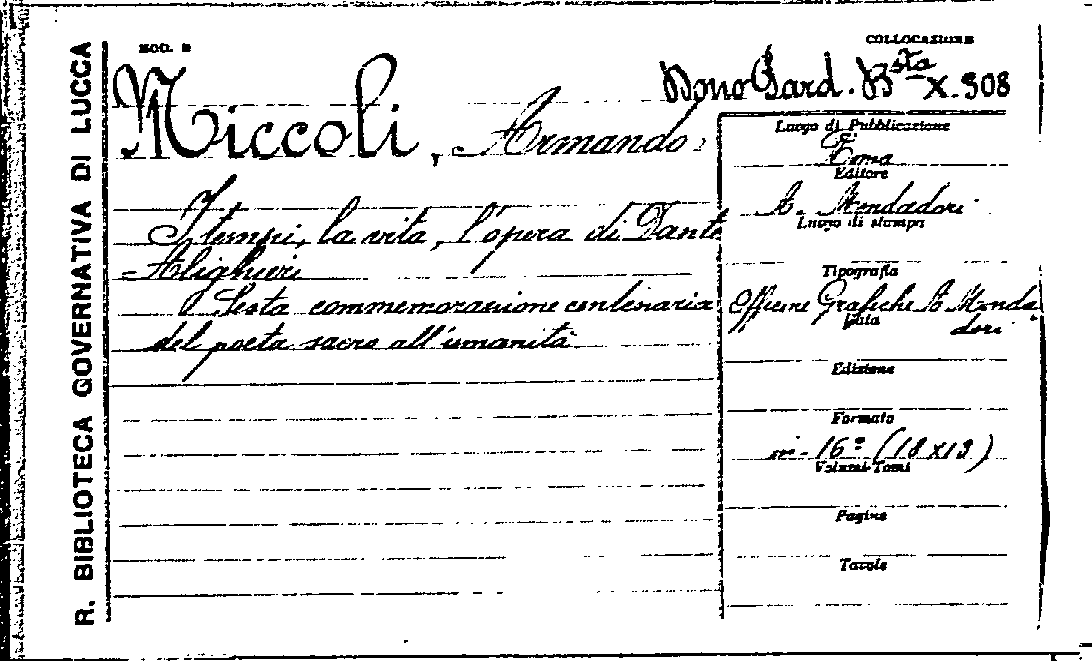 R. BIBLIOTECA GOVERNATIVA DI LUCCA
MOD. B
COLLOCAZIONE
Dono Gard. Bsta X. 308
Niccoli, Armando.
I tempi, la vita, l'opera di Dante
Alighieri
Sesta commemorazione centenaria
del poeta sacro all'umanità.
Luogo di Pubblicazione
Roma
Editore
A. Mondadori
Luogo di stampa
Tipografia
Officine Grafiche A. Monda-
dori
Data
Edizione
Formato
in-16º (18x13)
Volumi-Tomi
Pagine
Tavole